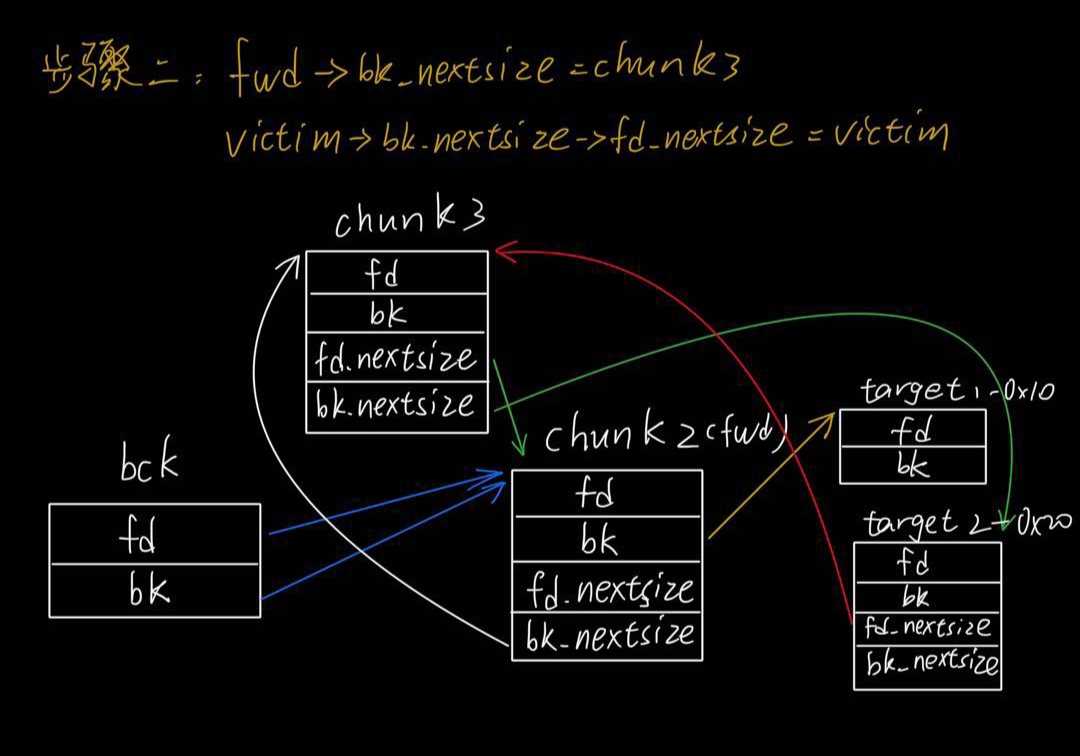 步骤二：fwd→bk_nextsize=chunk3
victim→bk.nextsize→fd_nextsize=victim
chunk3
fd
bk
fd.nextsize
bk.nextsize
bck
fd
bk
chunk2(fwd)
fd
bk
fd.nextsize
bk_nextsize
target1-0x10
fd
bk
target2-0x20
fd
bk
fd_nextsize
bk_nextsize